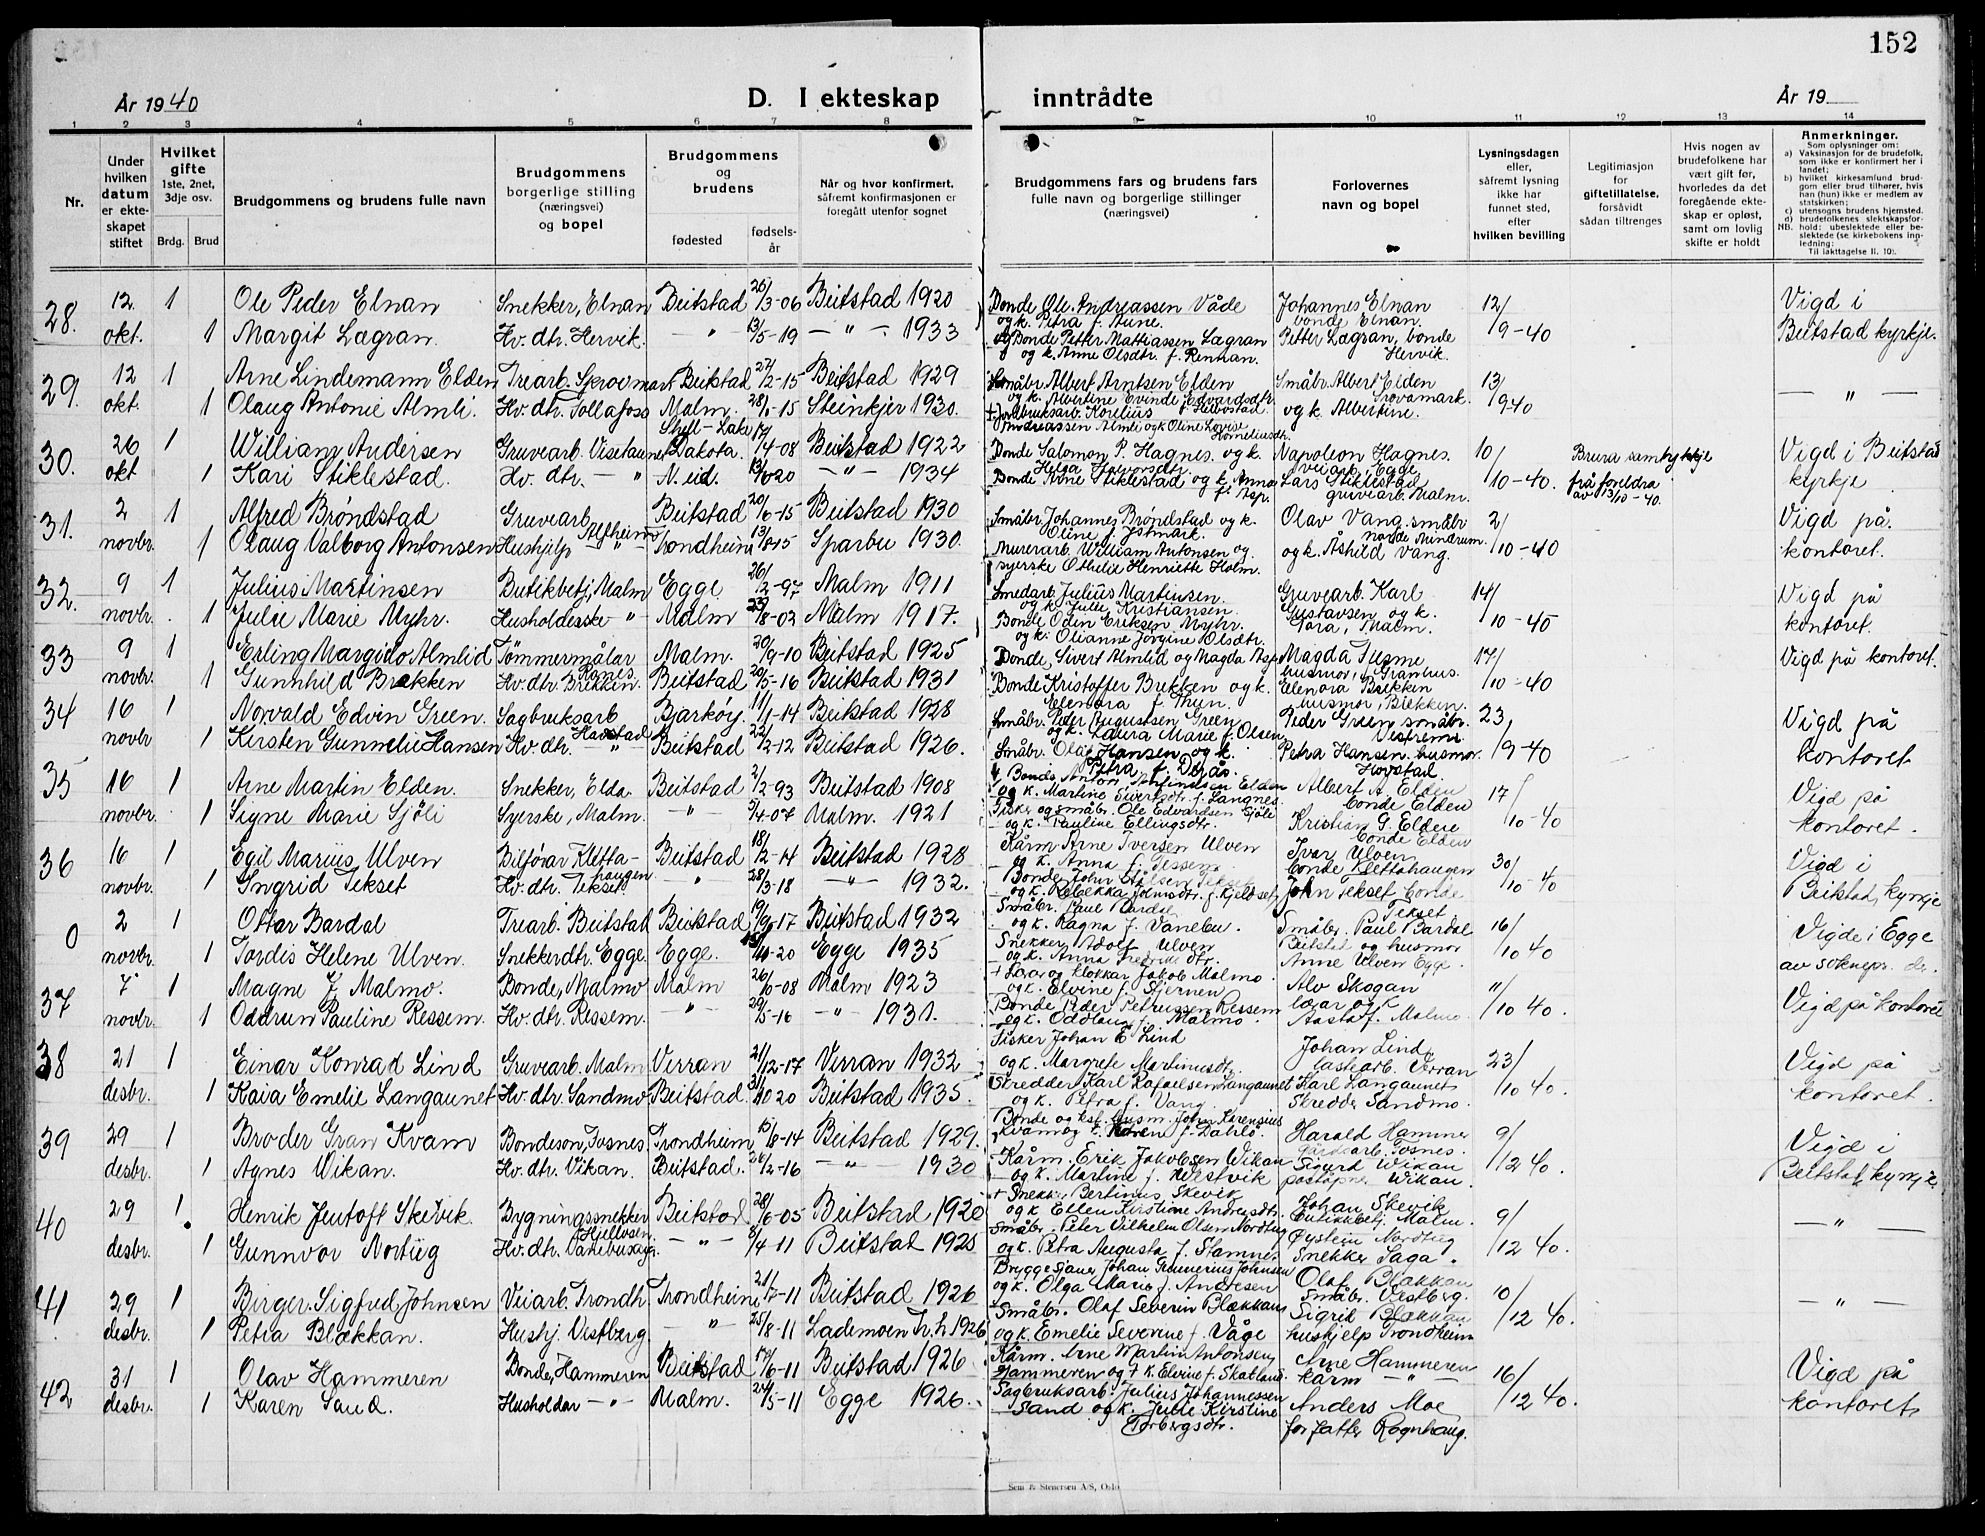 152
År 1940
D. I ekteskap inntrådte
År 19
1 2 3 4 5 6 7 8 9 10 11 12 13 14
Nr.
Under hvilken datum er ekteskapet stiftet
Hvilket gifte 1ste, 2net, 3dje osv.
Brdg. Brud
Brudgommens og brudens fulle navn
Brudgommens borgerlige stilling (næringsvei) og bopel
Brudgommens og brudens
fødested
fødselsår
Når og hvor konfirmert, såfremt konfirmasjonen er foregått utenfor sognet
Brudgommens fars og brudens fars fulle navn og borgerlige stillinger (næringsvei)
Forlovernes navn og bopel
Lysningsdagen eller, såfremt lysning ikke har funnet sted, efter hvilken bevilling
Legitimasjon for giftetillatelse, forsåvidt sådan tiltrenges
Hvis nogen av brudefolkene har vært gift før, hvorledes da det foregående ekteskap er opløst, samt om lovlig skifte er holdt
Anmerkninger.
Som oplysninger om:
a) Vaksinasjon for de brudefolk, som ikke er konfirmert her i landet;
b) hvilket kirkesamfund brudgom eller brud tilhører, hvis han (hun) ikke er medlem av statskirken;
c) utensogns brudens hjemsted.
d) brudefolkenes slektskapsforhold: ubeslektede eller beslektede (se kirkebokens innledning:
NB.
Til iakttagelse II. 10).
28. 12 1 Ole Peder Elnan Snekker, Elnan Beitstad 26/3-06 Beitstad 1920 Bonde Ole Andreassen Våde Johannes Elnan 12/ Vigd i
og k. Petra f. Aune. bonde Elnan.
okt. 1 Margit Lægran. Hv. dtr. Hervik. " 13/5-19 " 1933 Bonde Petter Mattiassen Lægran Petter Lægran, bonde 9-40 Beitstad kyrkje.
og k. Anne Olsdtr. f. Renman. Hervik.
29. 12 1 Arne Lindemann Elden Trearb. Sprovmark Beitstad 27/2-15 Beitstad 1929 Småbr. Albert Arntsen Elden Småbr. Albert Elden 13/ "
og k. Albertine Evinde Edvardsdtr. Sprovamark.
okt. 1 Olaug Antonie Almli. Hv. dtr. Tollafoss Malm. 28/ -15 Steinkjer 1930. Kornelius og k. Albertine. 9-40
Andreassen Almli og k. Oline Lovise Korneliusdtr.
30. 26 1 William Andersen Gruvearb. Dakota. 17/4-08 Beitstad 1922 Bonde Salomon P. Hagnes. og k. Napoleon Hagnes 10/ Brura samtykkje Vigd i Beitstad
Helga Halvorsdtr. veiarb. i Egge
okt 1 Kari Stiklestad. Hv. dtr. " N. eid. 20 " 1934 Bonde Arne Stiklestad og k. Anna Lars Stiklestad 10-40. frå foreldra kyrkje
f. Asp. gruvearb. Malm. av 13/10-40.
31. 2 1 Alfred Brøndstad Gruvearb. Beitstad 20/6-15 Beitstad 1930 Småbr. Johannes Brøndstad og k. Olav Vang. småbr 2/ Vigd på
Alfheim Oline f. Østmark.
novbr. 1 Olaug Valborg Antonsen Hushjelp " Trondheim 13/8-15 Sparbu 1930. Murerarb. William Antonsen og og k. Åshild Vang. 10-40 kontoret.
syerske Othelie Henriette Holm.
32. 9 1 Julius Martinsen Butikkbetj. Malm Egge 26/12-97 Malm 1911 Smedarb. Julius Martinsen Gruvearb. Karl 14/ Vigd på
og k. Julie Kristiansen. Gustavsen og k.
novbr. 1 Julie Marie Myhr. Husholderske " Malm 29/8-02 Malm 1917. Bonde Oden Eriksen Myhr Tora, Malm. 10-40 kontoret.
og k. Olianne Jørgine Olsdtr.
33 9 1 Erling Margido Almlid Tømmermålar Malm. 20/9-10 Beitstad 1925 Bonde, Sivert Almlid og Magda Asp Magda Tusme 17/ Vigd på kontoret.
husmor, Granhus.
novbr. 1 Gunnhild Brekken Hv. dtr. Brekken. Beitstad 20/5-16 Beitstad 1931 Bonde Kristoffer Brekken og k. Elenora Brekken 10-40
Elenora f. Thun. husmor, Brekken.
34 16 1 Norvald Edvin Green. Sagbruksarb Bjarkøy. 11/1-14 Beitstad 1928 Småbr. Peter Augustsen Green Peder Green småbr. 23/ Vigd på
og k. Laura Marie f. Olsen Vestrem
novbr 1 Kirsten Gunnelie Hansen Hv. dtr. " Beitstad 22/2-12 Beitstad 1926. Småbr. Olaf Hansen og k. Petra Hansen. husmor 9-40 kontoret
Petra f. Derås. Hovstad.
35 16 1 Arne Martin Elden. Snekker, Elda. Beitstad 2/2-93 Beitstad 1908 Bonde Anton Arntsen Elden Albert A. Elden 17/ Vigd på
og k. Martine Sivertsdtr. f. Langnes. bonde Elden
novbr. 1 Signe Marie Sjöli Syerske, Malm. " 5/4-07 Malm. 1921 Fisker og småbr. Ole Edvardsen Sjöli Kristian G. Eldere 10-40 kontoret.
og k. Pauline Ellingsdtr. bonde Elden
36 16 1 Egil Marius Ulven Bilförar Kletta- Beitstad 18/12-14 Beitstad 1928 Kårm. Arne Iversen Ulven Ivar Ulven 30/ Vigd i
haugen og k. Anna f. Tessem bonde Klettahaugen
novbr. 1 Ingrid Tekset Hv. dtr. Tekset " 28/3-18 " 1932. Bonde John Tekset John Tekset bonde 10-40 Beitstad kyrkje
og k. Rebekka Johnsdtr. f. Kjeldset Tekset
0 2 1 Ottar Bardal Trearb. Beitstad Beitstad 19/9-17 Beitstad 1932 Småbr. Paul Bardal Småbr. Paul Bardal 16/ Vigde i Egge
og k. Ragna f. Vanebu. Beitstad og husmor
novbr. 1 Tordis Helene Ulven. Snekkerdtr. Egge. Egge. -20 Egge 1935 Snekker Adolf Ulven Anne Ulven Egge. 10 40 av sokneprdr.
og k. Anna Fredrikkdtr.
37 7 1 Magne J. Malmo. Bonde, Malmo Malm 26/6-08 Malm 1923 Lærar og klokkar Jakob Malmo. Alv Skogan 11/ Vigd på kontoret
og k. Elvine f. Stjernen lærar og k.
novbr. 1 Oddrun Pauline Ressem. Hv. dtr. Ressem. " 29/5-16 " 1931. Bonde Peder Petrussen Ressem Aasta f. Malmo. 10 40.
og k. Oddlaug f. Malmo.
38 21 1 Einar Konrad Lind Gruvearb. Malm Verran 21/12-17 Verran 1932 Fisker Johan E Lind Johan Lind 23/ Vigd på
og k. Margrete Martinusdtr. lastearb. Verran
desbr. 1 Kaia Emelie Langaunet Hv. dtr. Sandmo Beitstad. 31/10 20 Beitstad 1935. Skredder Karl Rafaelsen Langaunet Karl Langaunet 10 40. kontoret.
og k. Petra f. Vang. Skredder Sandmo.
39 29 1 Broder Gran Kvam Bondeson, Fosnes. Trondheim 15/8-14 Beitstad 1929. Bonde og Johan Kårensius Harald Hammer 9/ Vigd i
Kvam og k. Karen f. Dahlö. gårdsarb. Fosnes.
desbr. 1 Agnes Wikan. Hv. dtr. Vikan. Beitstad. 26/2-16 " 1930 Kårm. Erik Jakobsen Wikan Sigurd Wikan 12 40. Beitstad kyrkje
og k. Martine f. Westvik postopner Wikan.
40 29 1 Henrik Jentoft Skevik. Bygningssnekker Beitstad 28/6-05 Beitstad 1920 Snekker Bertinus Skevik Johan Skevik 9/ "
og k. Ellen Kirstine Andreasdtr. butikkbetj. Malm.
desbr. 1 Gunnvor Nortug Hv. dtr. " /4-11 Beitstad 1925 Småbr. Peter Vilhelm Olsen Nordtug Øystein Nordtug 12 40.
og k. Petra Augusta f. Stamnes Snekker Saga.
41 29 1 Birger Sigfred Johnsen Veiarb. Trondh. Trondheim 21/7-11 Beitstad 1926 Bryggesjauer Johan Gunnerius Johnsen Olaf Blækkan 10/ "
og k. Olga Marie f. Andresen Småbr. Vestberg.
desbr. 1 Petra Blækkan. Hushj. Vestberg " 25/8-11 Lademoen Tr.h 1926 Småbr. Olaf Severin Blækkan Sigrid Blækkan 12 40.
og k. Emelie Severine f. Våge hushjelp Trondheim
42 31 1 Olav Hammeren Bonde, Hammeren Beitstad 17/6-11 Beitstad 1926 Kårm. Arne Martin Antonsen Arne Hammeren 16/ Vigd på
Hammeren og † k. Elvine f. Skatland. kårm "
desbr. 1 Karen Sand. Husholdar " Malm. 24/5-11 Egge 1926. Sagbruksarb. Julius Johannessen Anders Moe 12 40. kontoret
Sand og k. Julie Kirstine forfatter Rognhaug.
Torbergsdtr.
Sem & Stenersen A/S, Oslo